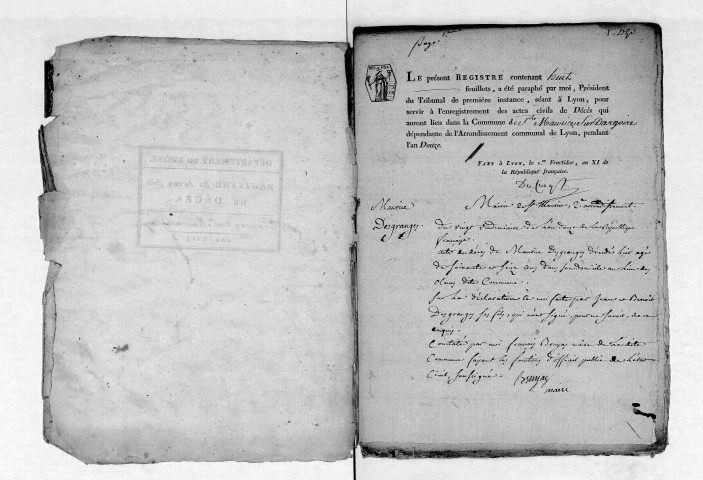 Page 1ere
LE présent REGISTRE contenant huit
feuillets, a été paraphé par moi, Président
du Tribunal de première instance, séant à Lyon, pour
servir à l'enregistrement des actes civils de Décès qui
auront lieu dans la Commune de St Maurice Sur Dargoire
dépendante de l'Arrondissement communal de Lyon, pendant
l'an Douze.
FAIT à LYON, le 1er Fructidor, an XI de
la République française.
Maurice
Desgranges
Mairie de St Maurice, 2e arrondissement
du vingt vendemiaire de l'an douze de la République
française
acte de décès de Maurice Desgranges décédé hier agé
de soixante et seize ans dans son domicile au lieu des
dite Commune.
Sur la déclaration à moi faite par Jean et Benoit
Desgranges ses fils, qui n'ont signé, pour ne savoir, de ce
enquis.
Constaté par moi françois Bruyas maire de la dite
Commune faisant les fonctions d'officier public de l'état
Civil, soussigné.
Bruyas
maire
DÉPARTEMENT DU RHONE
REGISTRE
DE DÉCÈS